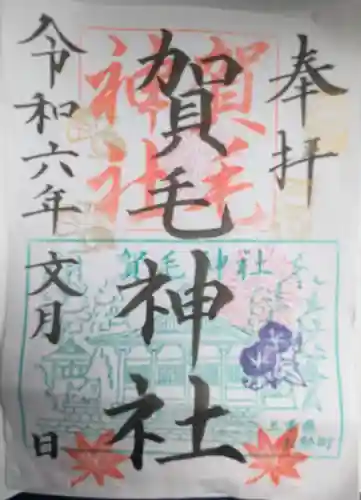 奉拝
賀毛神社
令和六年文月
日
賀毛
神社
賀毛神社